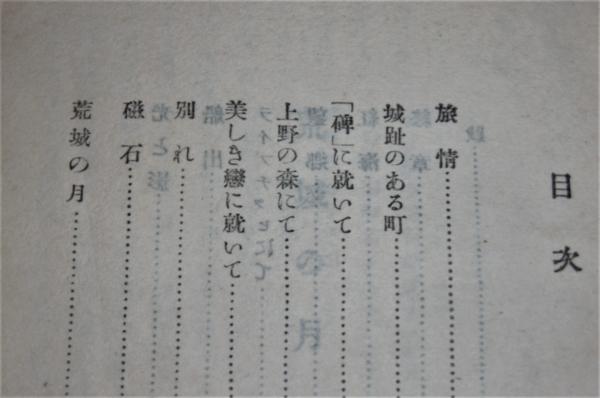 目次
旅情
城趾のある町
「碑」に就いて
上野の森にて
美しき戀に就いて
別れ
磁石
荒城の月